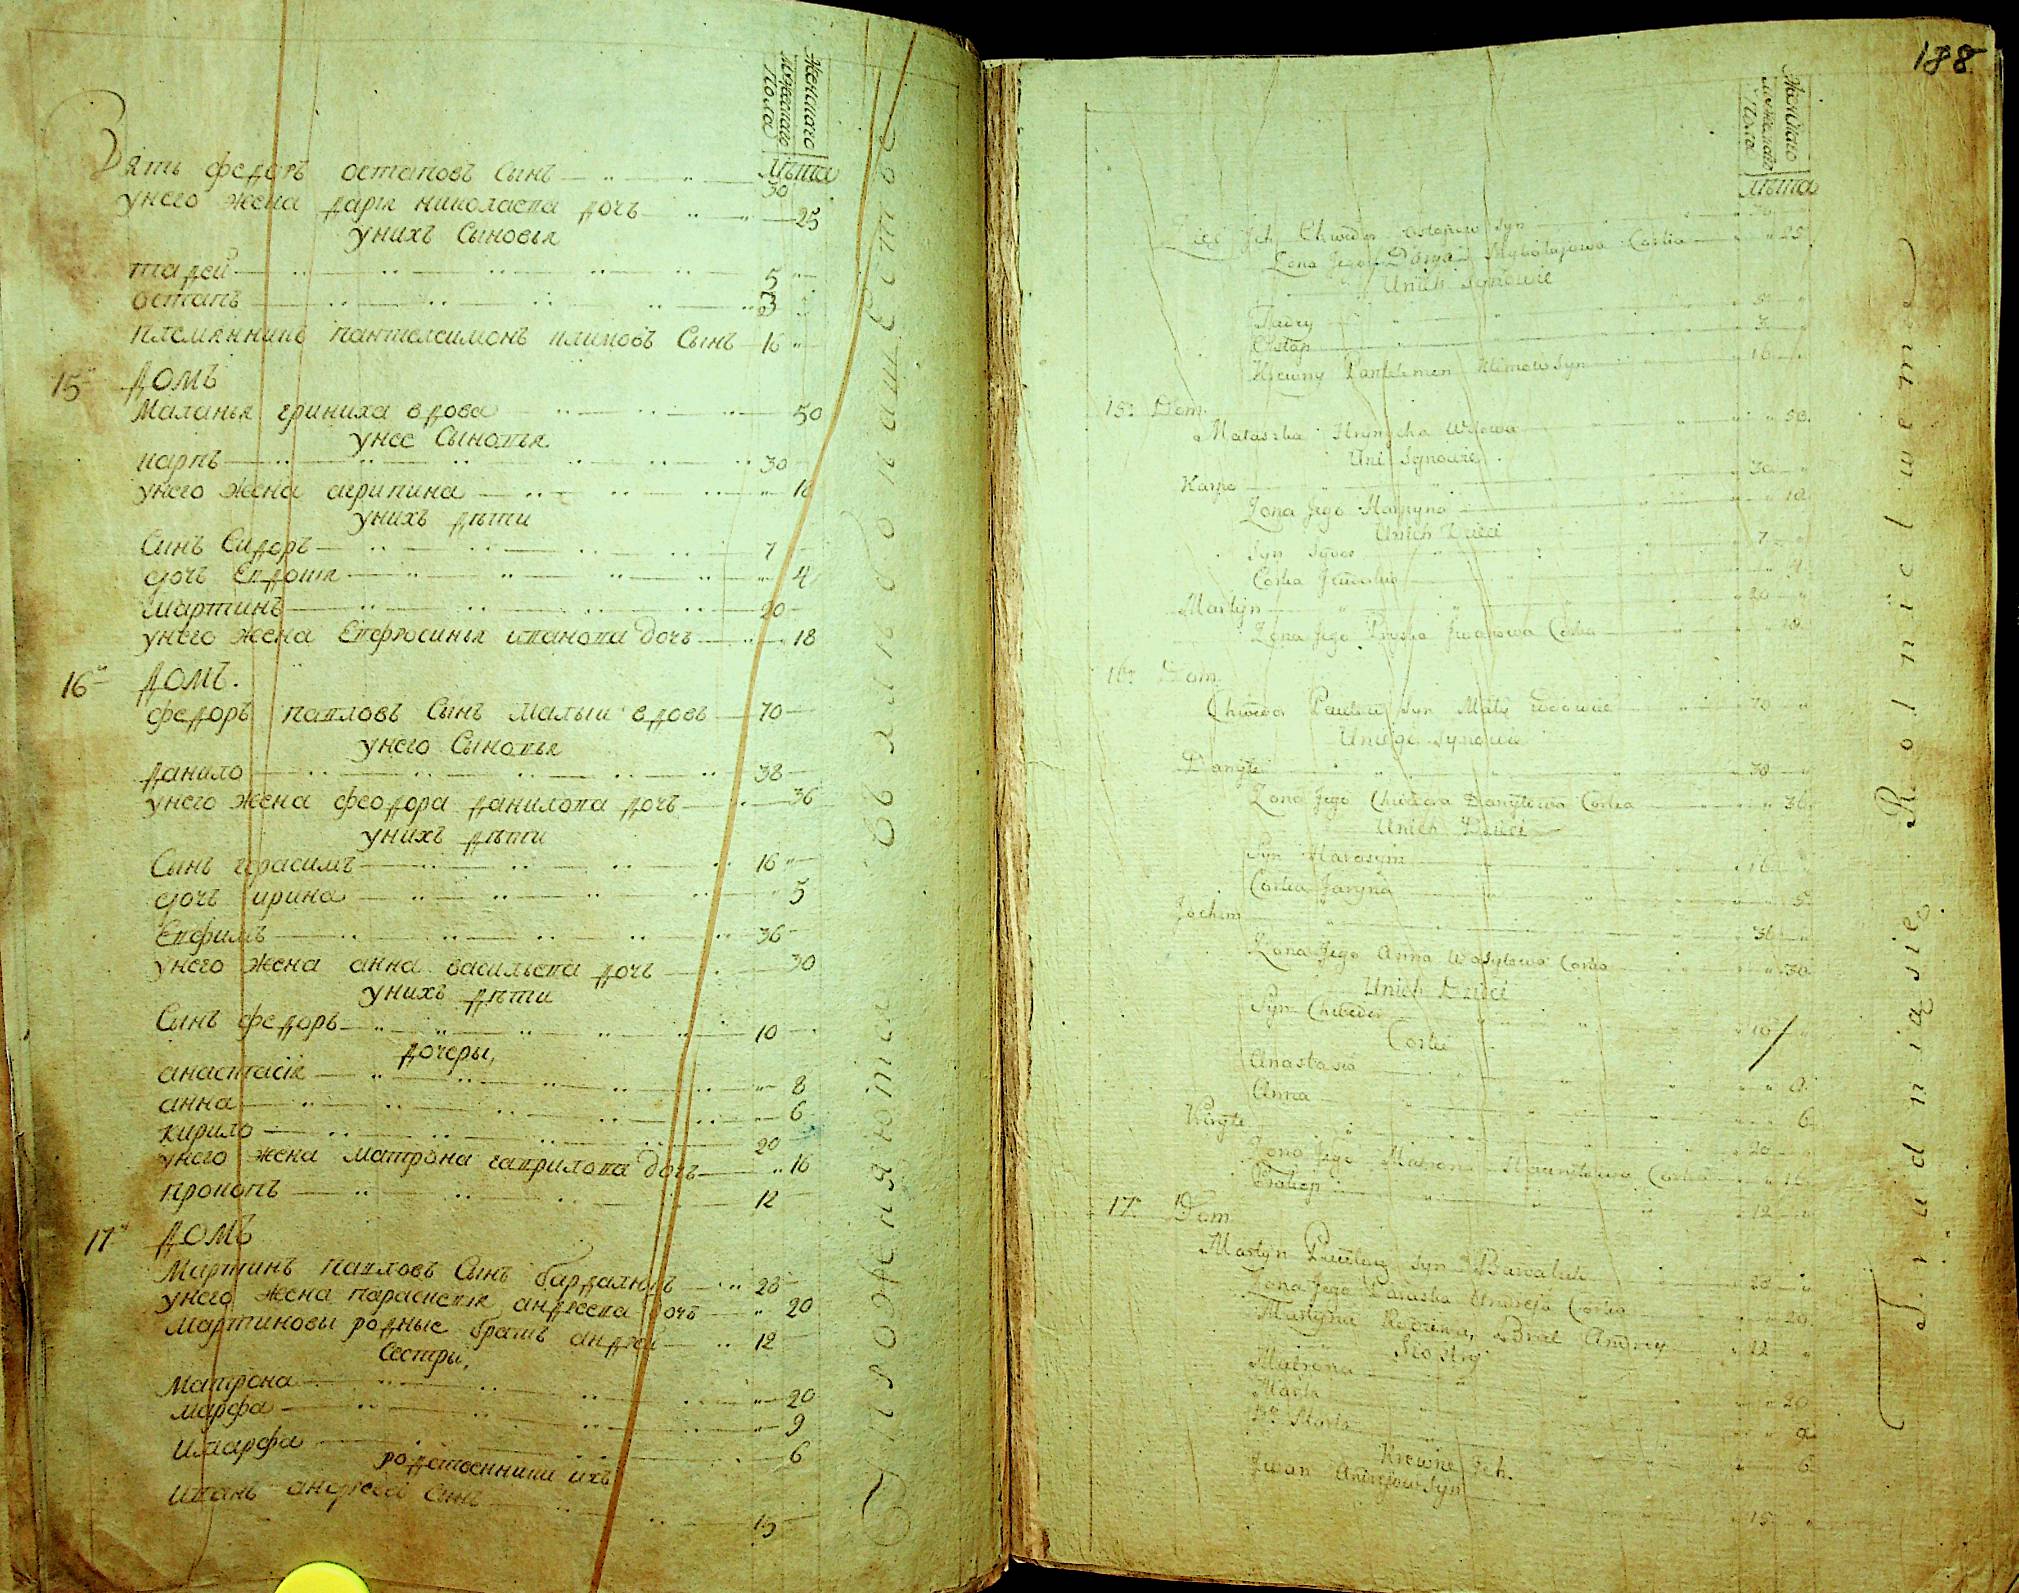 женскаго
мужескаго
пола
лѣта
Зять федоръ остаповъ Сынъ 30
унего жена дарія николаева дочь 25
унихъ Сыновья
тадей 5
остапъ 3
племянникъ пантелеимонъ климовъ Сынъ 16
15й домъ
Маланья гриниха вдова 50
унее Сыновья
карпъ 30
унего жена агрипина 18
унихъ дѣти
Синъ Сидоръ 7
дочь Евдокия 4
мартинъ 20
унего жена Евфросинья иванова дочь 18
16й домъ.
федоръ павловъ Сынъ Малыи вдовъ 70
унего Сыновья
данило 38
унего жена феодора данилова дочь 36
унихъ дѣти
Сынъ герасимъ 16
дочь ирина 5
Ефимъ 36
унего жена анна васильева дочь 30
унихъ дѣти
Сынъ федоръ 10
дочеры,
анастасія 8
анна 6
кирило 20
унего жена матрона гаврилова дочь 16
прокопъ 12
17й домъ
Мартинъ павловъ Сынъ 28
унего жена параскевія андреева дочь 20
мартиновы родные братъ андрей 12
Сестри,
матрона 20
марфа 9
имарфа 6
родственники ихъ
иванъ андреевъ Сынъ 15
188
женскаго
мужескаго
пола
лѣта
Zięć Ich Chwedor Ostapow Syn 30
Zona Jego Darya Mykołajowa Corka 25
Unich Synowie
Tadey 5
Ostap 3
Krewny Pantelemon Klimow Syn 16
15. Dom.
Małaszka Hrynycha Wdowa 50
Uni Synowie
Karpo 30
Zona Jego Harpyna 18
Unich Dzieci
Syn Sydor 7
Corka 4
Martyn 20
Zona Jego Pryska Jwanowa Corka 18
16. Dom.
Chwedor Pawłow Syn Mały Wdowiec 70
Uniego Synowie
Danyło 38
Zona Jego Chwedora Danyłowa Corka 36
Unich Dzieci
Syn Harasym 16
Corka Jaryna 5
Jochim 36
Zona Jego Anna Wasylowa Corka 30
Unich Dzieci
Syn Chwedor 10
Corki
Anastasia 8
Anna 6
Kiryło 20
Zona Jego Matrona Hawryłowa Corka 16
Prokop 12
17. Dom
Martyn Pawłow Syn 28
Zona Jego Paraska Andreja Corka 20
Martyna Rodzina, Brat Andrey 12
Siostry
Matrona 20
Marta 9
2. Marta 6
Krewne Ich.
Jwan Andrejow Syn 15